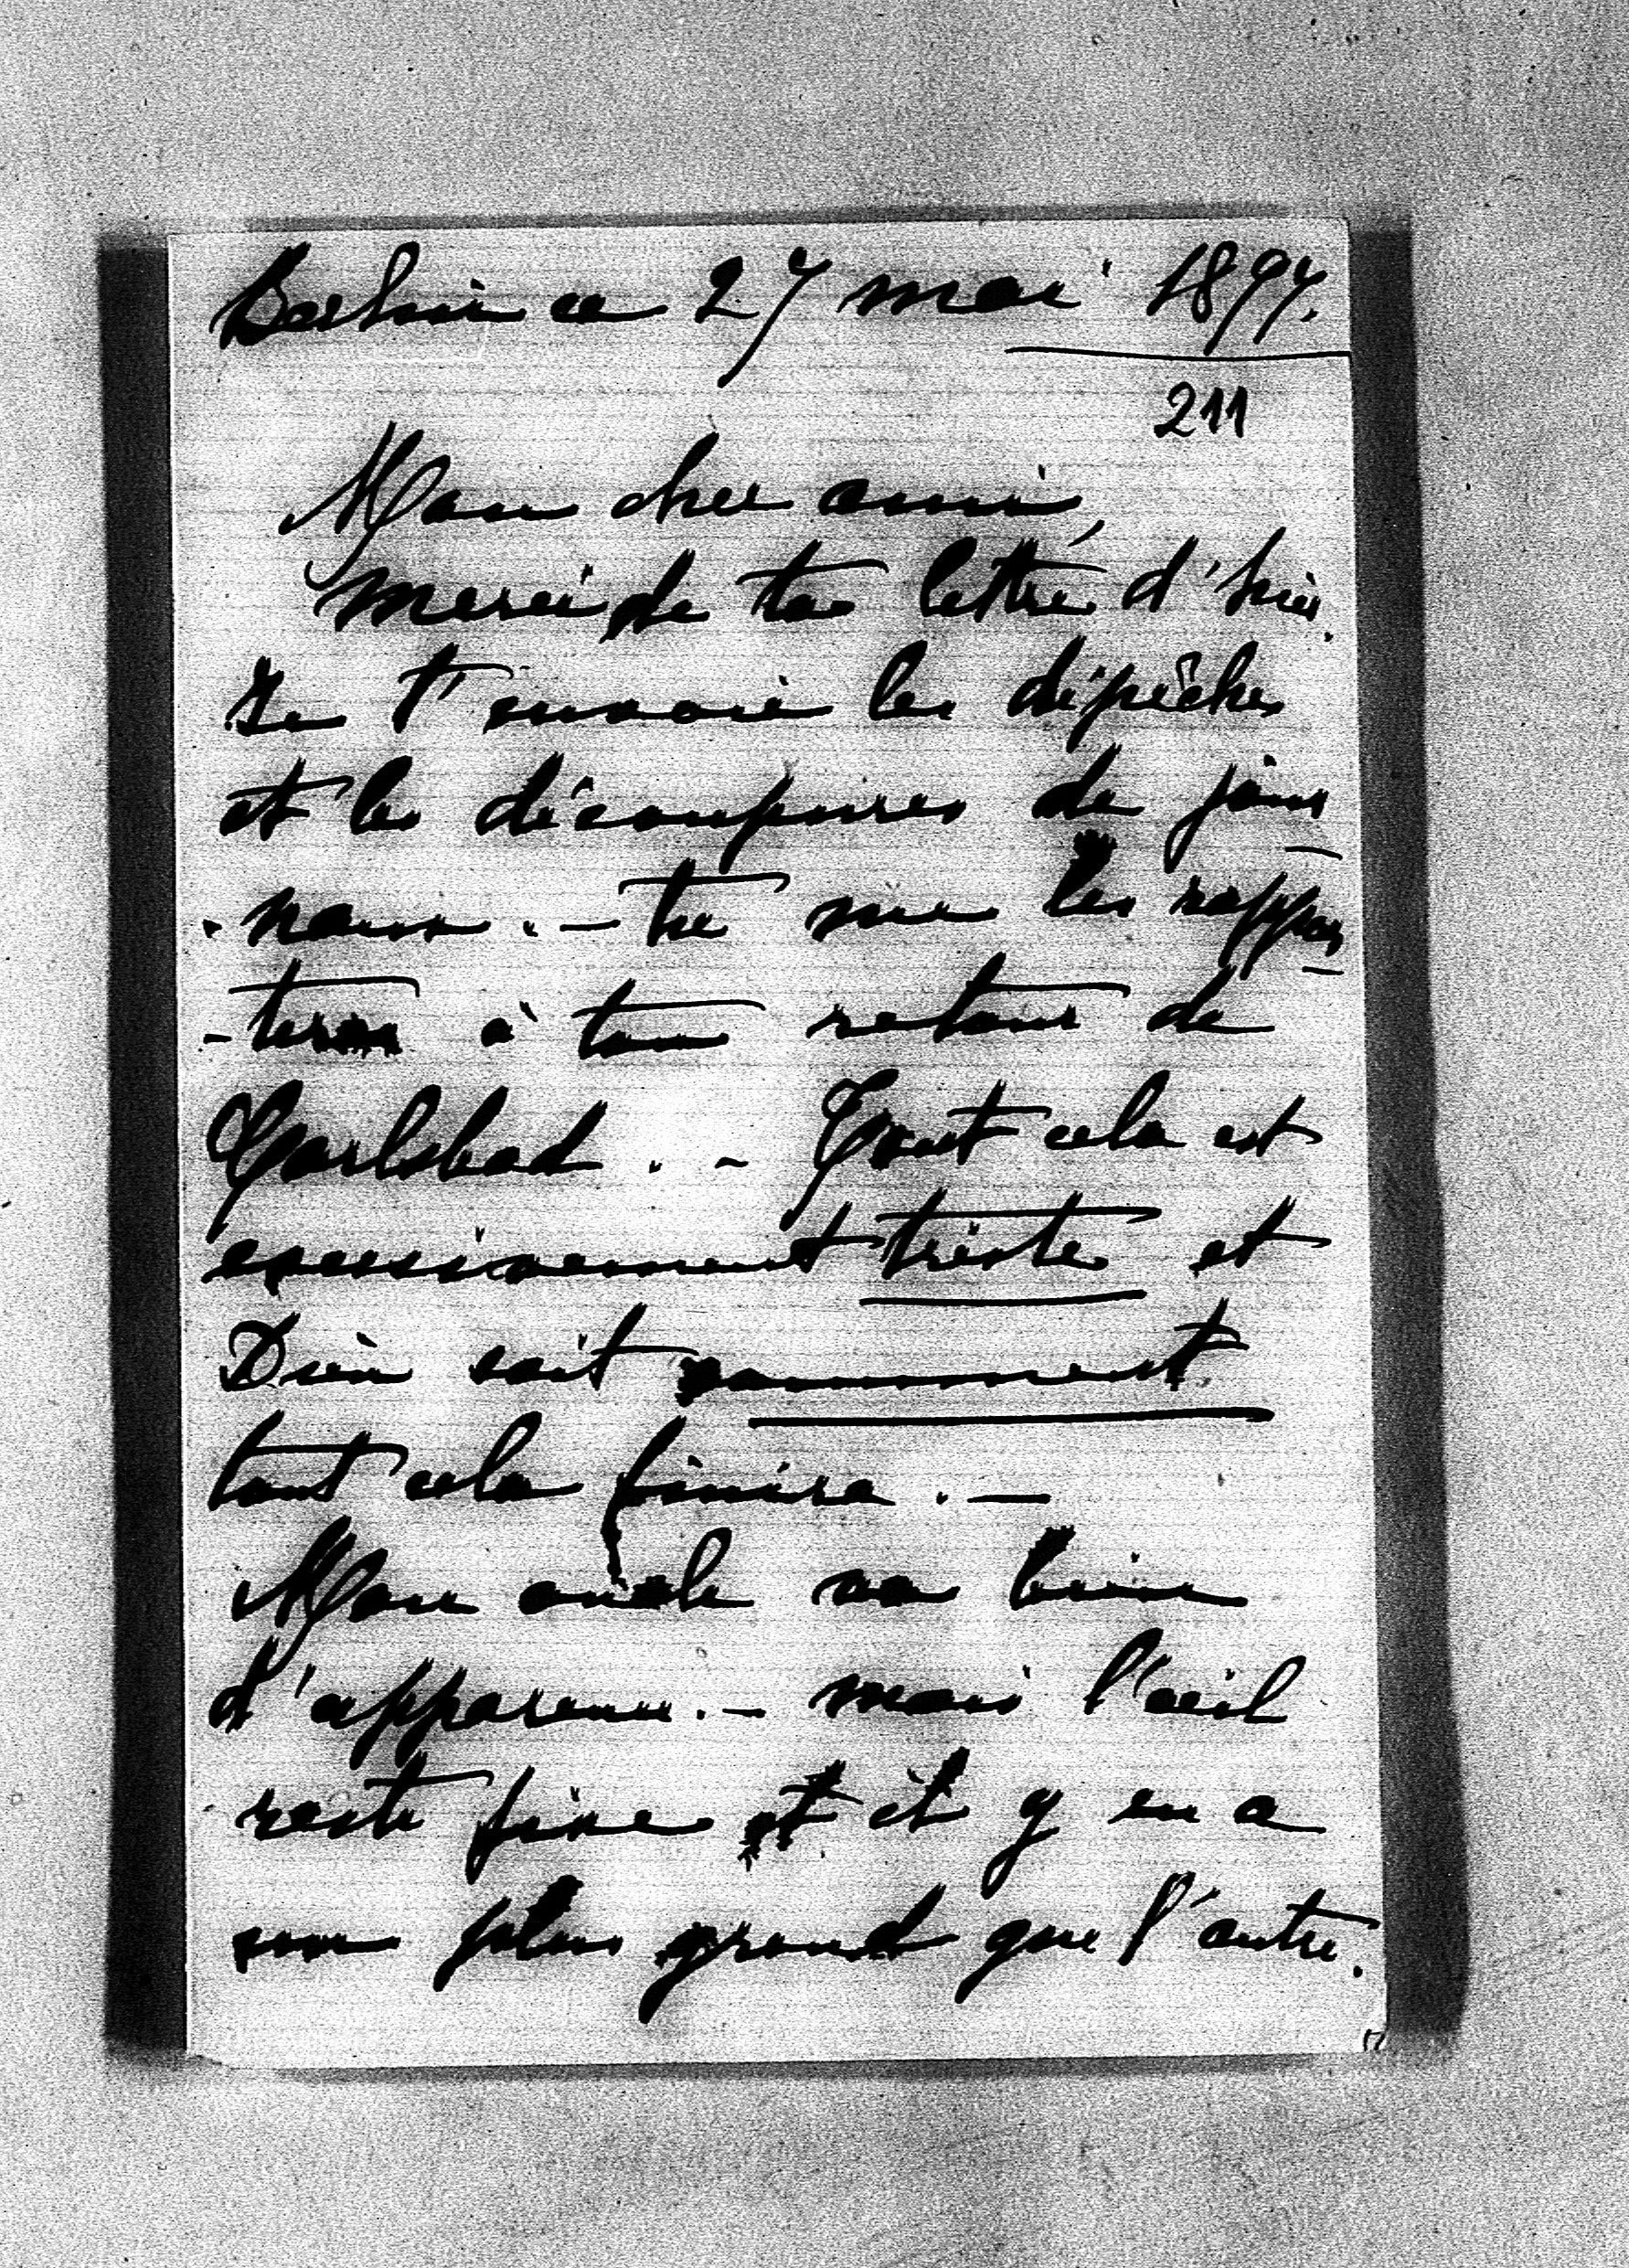 Berlin ce 27 mai 1897.
211
Mon cher ami,
merci de ta lettre d'hier.
Je t'envoie les dépêches
et les découpures de jour
-naux. - tu me les rappor
-teras à ton retour de
Carlsbad. - Tout cela est
excessivement triste et
Dieu sait comment
tout cela finira. -
Mon oncle va bien
d'apparence. - mais l'œil
reste fixe et il y en a
un plus grand que l'autre.